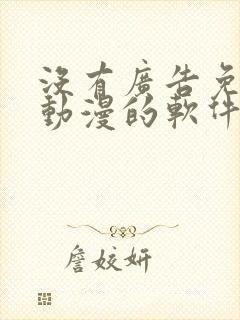 沒有廣告免
動漫的軟件
詹姣妍